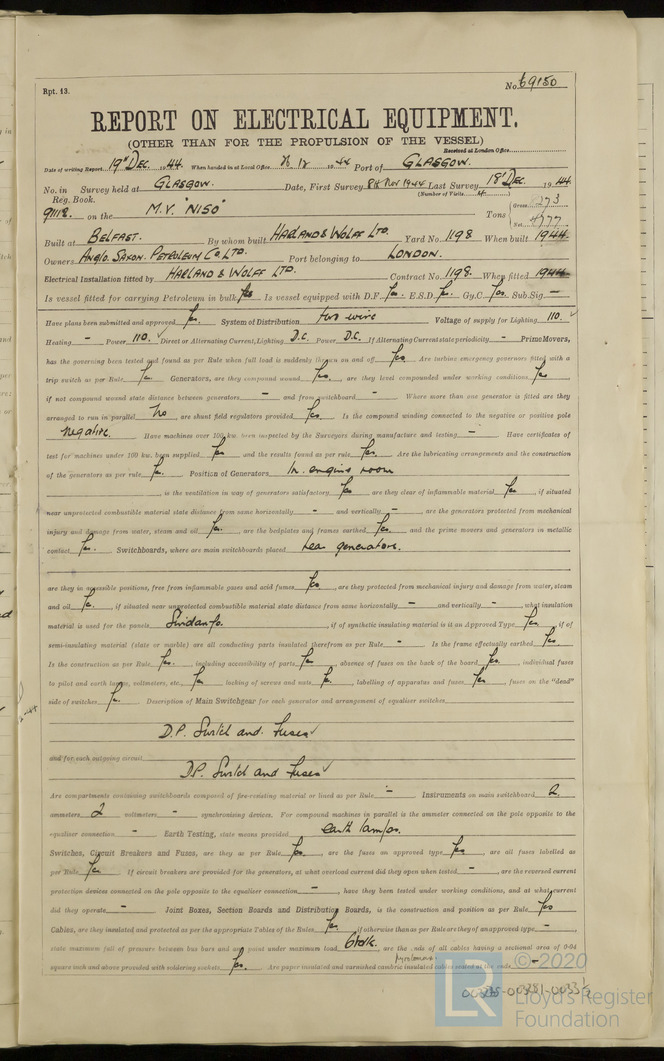 Rpt. 13.
No. 69150
REPORT ON ELECTRICAL EQUIPMENT.
(OTHER THAN FOR THE PROPULSION OF THE VESSEL)
Received at London Office
Date of writing Report 19th Dec. 1944 When handed in at Local Office 1944 Port of GLASGOW.
No. in Survey held at GLASGOW. Date, First Survey 8th Nov 1944 Last Survey 18th Dec. 1944
Reg. Book. (Number of Visits 4)
91112 on the M.V. "NISO" Tons { Gross 273
Net 4777
Built at BELFAST. By whom built HARLAND & WOLFF LTD. Yard No. 1198 When built 1944
Owners ANGLO. SAXON. PETROLEUM Co LTD. Port belonging to LONDON.
Electrical Installation fitted by HARLAND & WOLFF LTD. Contract No. 1198 When fitted 1944
Is vessel fitted for carrying Petroleum in bulk Yes Is vessel equipped with D.F. Yes. E.S.D. Yes. Gy.C. Yes. Sub.Sig. -
Have plans been submitted and approved Yes. System of Distribution two wire Voltage of supply for Lighting 110.
Heating - Power 110. Direct or Alternating Current, Lighting D.C. Power D.C. If Alternating Current state periodicity - Prime Movers,
has the governing been tested and found as per Rule when full load is suddenly thrown on and off Yes. Are turbine emergency governors fitted with a
trip switch as per Rule Yes Generators, are they compound wound Yes., are they level compounded under working conditions Yes
if not compound wound state distance between generators - and from switchboard - Where more than one generator is fitted are they
arranged to run in parallel No, are shunt field regulators provided Yes. Is the compound winding connected to the negative or positive pole
negative. Have machines over 100 kw. been inspected by the Surveyors during manufacture and testing - Have certificates of
test for machines under 100 kw. been supplied Yes and the results found as per rule Yes. Are the lubricating arrangements and the construction
of the generators as per rule Yes. Position of Generators In engine room
, is the ventilation in way of generators satisfactory Yes are they clear of inflammable material Yes, if situated
near unprotected combustible material state distance from same horizontally - and vertically -, are the generators protected from mechanical
injury and damage from water, steam and oil Yes., are the bedplates and frames earthed Yes and the prime movers and generators in metallic
contact Yes. Switchboards, where are main switchboards placed near generators.
are they in accessible positions, free from inflammable gases and acid fumes Yes, are they protected from mechanical injury and damage from water, steam
and oil Yes., if situated near unprotected combustible material state distance from same horizontally - and vertically -, what insulation
material is used for the panels Sindanyo., if of synthetic insulating material is it an Approved Type Yes, if of
semi-insulating material (slate or marble) are all conducting parts insulated therefrom as per Rule - Is the frame effectually earthed Yes
Is the construction as per Rule Yes., including accessibility of parts Yes, absence of fuses on the back of the board Yes., individual fuses
to pilot and earth lamps, voltmeters, etc. Yes, locking of screws and nuts Yes, labelling of apparatus and fuses Yes, fuses on the "dead"
side of switches Yes. Description of Main Switchgear for each generator and arrangement of equaliser switches
D.P. Switch and Fuses
and for each outgoing circuit
D.P. Switch and Fuses
Are compartments containing switchboards composed of fire-resisting material or lined as per Rule - Instruments on main switchboard 2
ammeters 2 voltmeters - synchronising devices. For compound machines in parallel is the ammeter connected on the pole opposite to the
equaliser connection - Earth Testing, state means provided earth lamps.
Switches, Circuit Breakers and Fuses, are they as per Rule Yes, are the fuses an approved type Yes, are all fuses labelled as
per Rule Yes If circuit breakers are provided for the generators, at what overload current did they open when tested -, are the reversed current
protection devices connected on the pole opposite to the equaliser connection -, have they been tested under working conditions, and at what current
did they operate - Joint Boxes, Section Boards and Distribution Boards, is the construction and position as per Rule Yes
Cables, are they insulated and protected as per the appropriate Tables of the Rules Yes, if otherwise than as per Rule are they of an approved type -,
state maximum fall of pressure between bus bars and any point under maximum load 6 volts., are the ends of all cables having a sectional area of 0·04
square inch and above provided with soldering sockets Yes. Are paper insulated and varnished cambric insulated cables sealed at the ends -
© 2020
Lloyd's Register
Foundation
LR